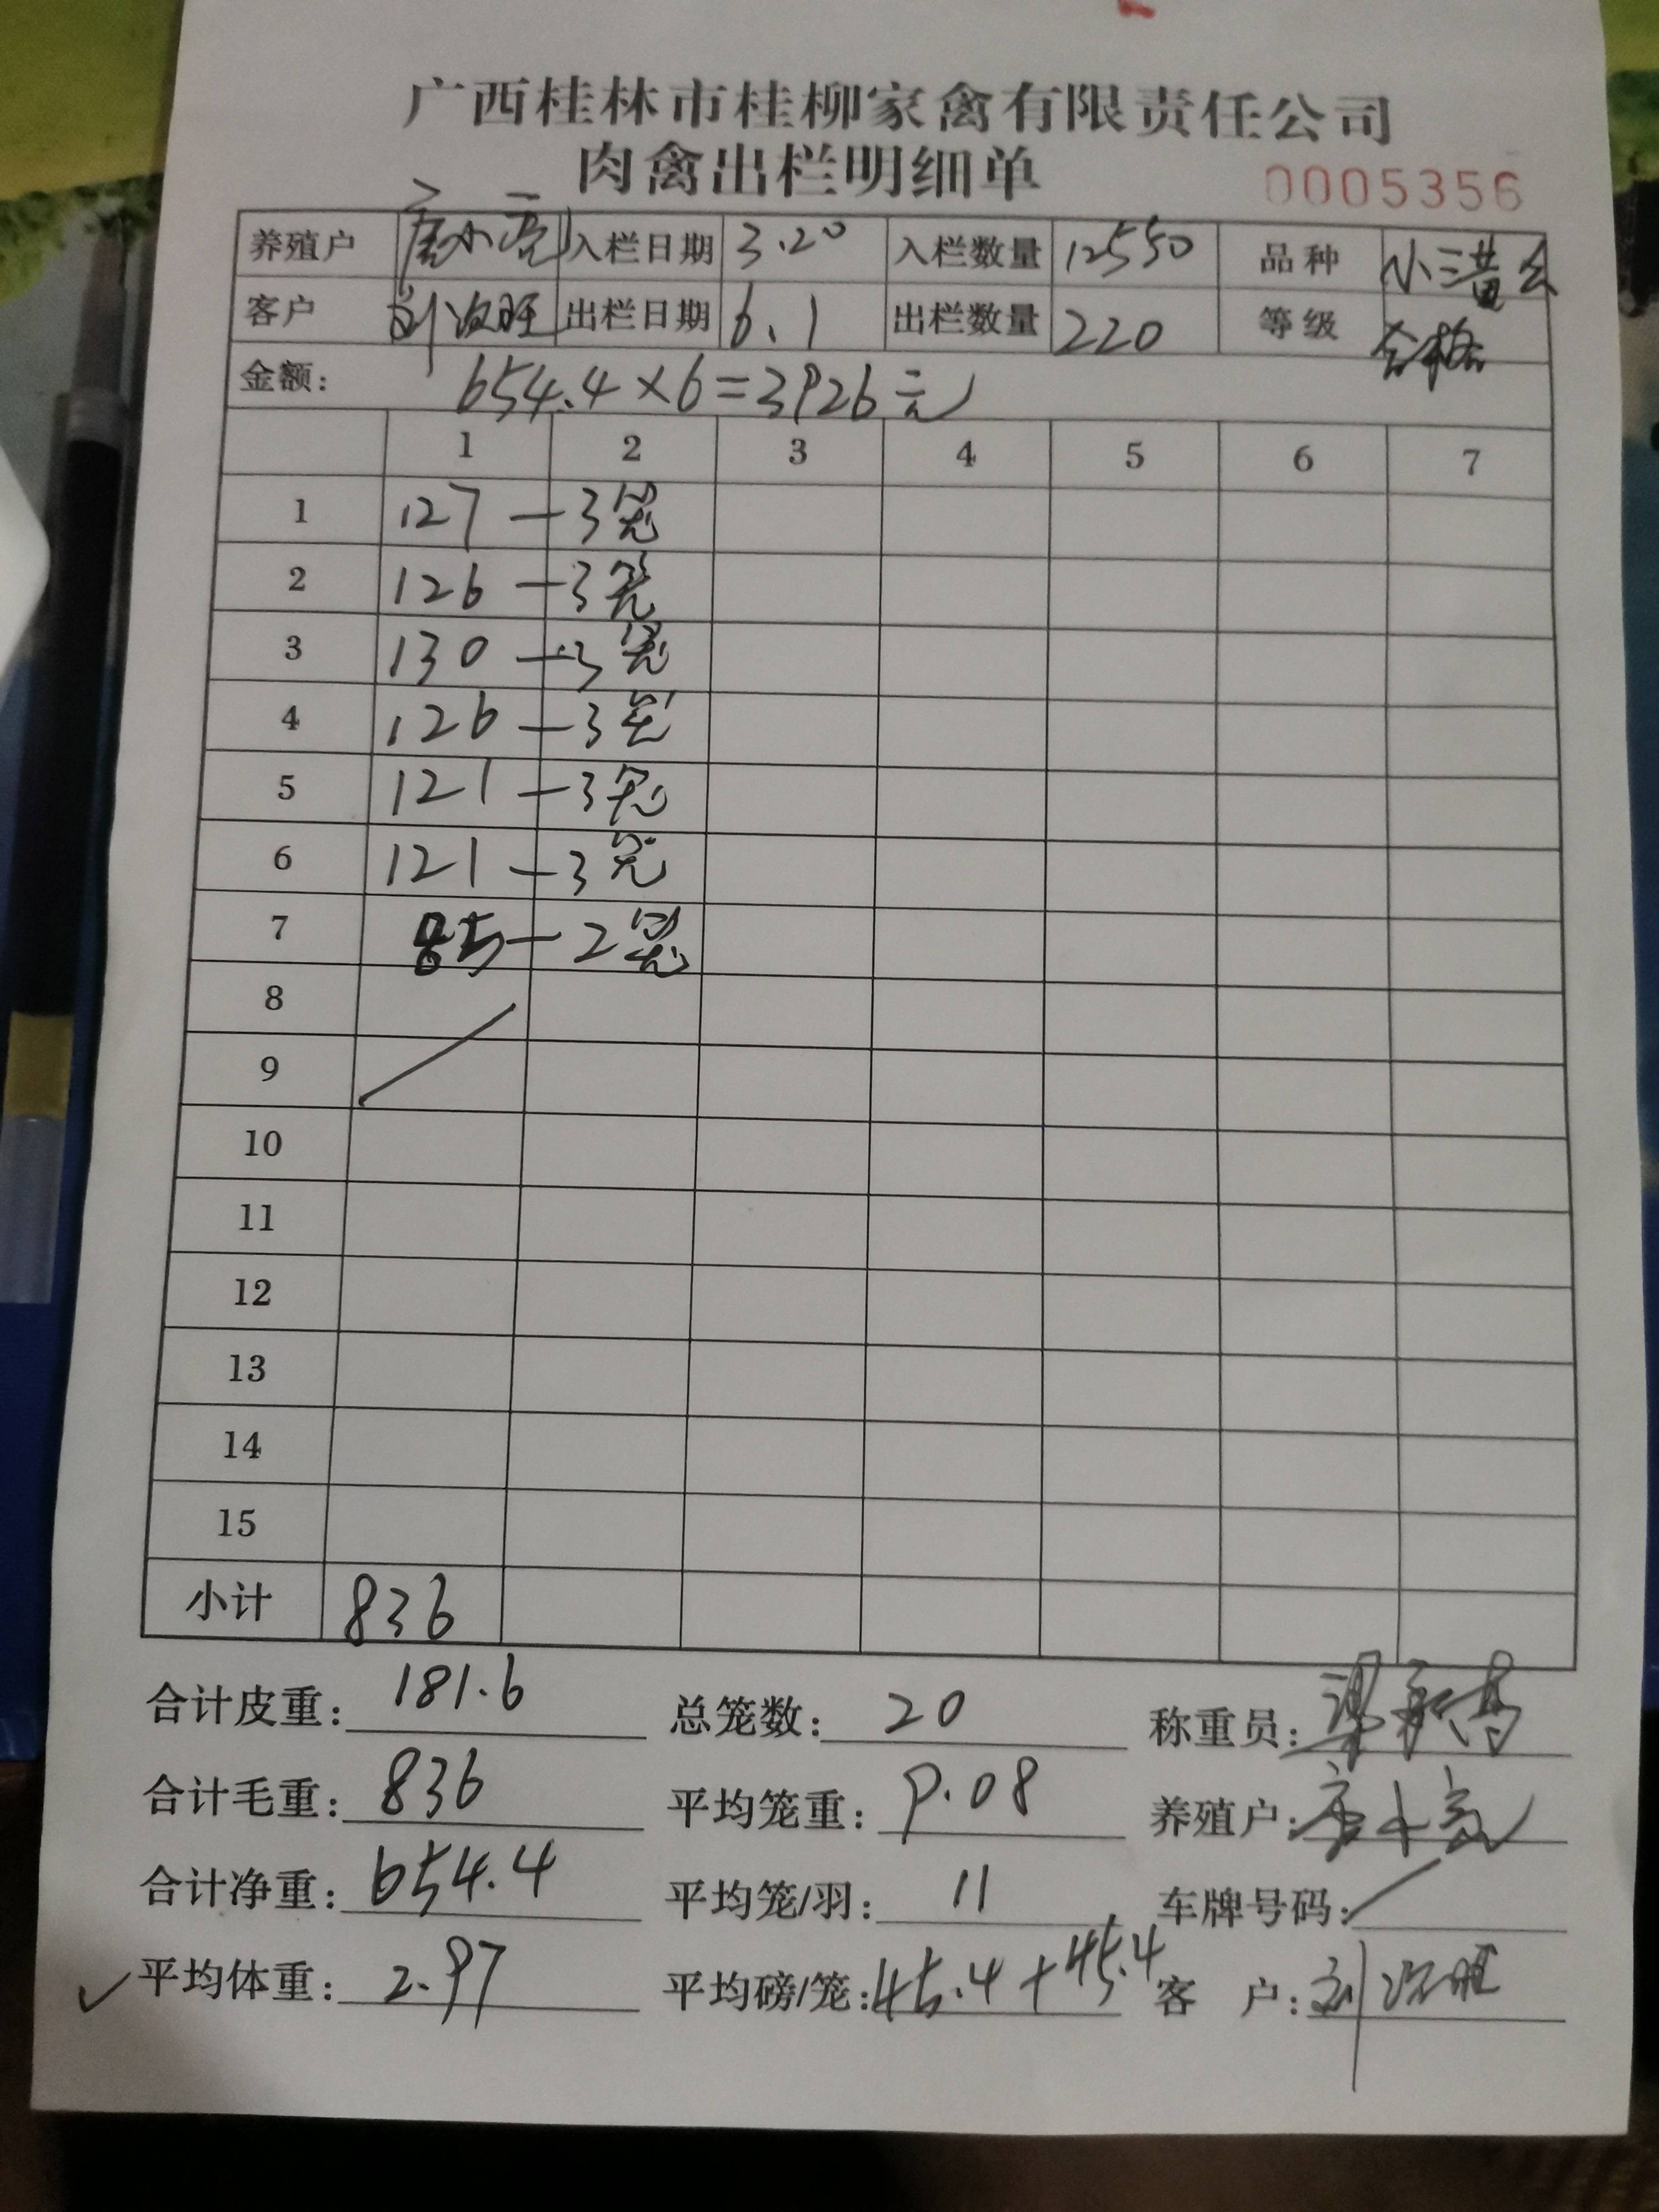 广西桂林市桂柳家禽有限责任公司
肉禽出栏明细单
0005356
养殖户 唐小亮 入栏日期 3.20 入栏数量 12550 品种 小三黄公
客户 刘次旺 出栏日期 6.1 出栏数量 220 等级 合格
金额: 654.4×6=3926元
1 2 3 4 5 6 7
1 127 — 3笼
2 126 — 3笼
3 130 — 3笼
4 126 — 3笼
5 121 — 3笼
6 121 — 3笼
7 85 — 2笼
8
9
10
11
12
13
14
15
小计 836
合计皮重: 181.6 总笼数: 20 称重员:
合计毛重: 836 平均笼重: 9.08 养殖户: 唐小亮
合计净重: 654.4 平均笼/羽: 11 车牌号码:
✓平均体重: 2.97 平均磅/笼: 45.4+45.4 客 户: 刘次旺